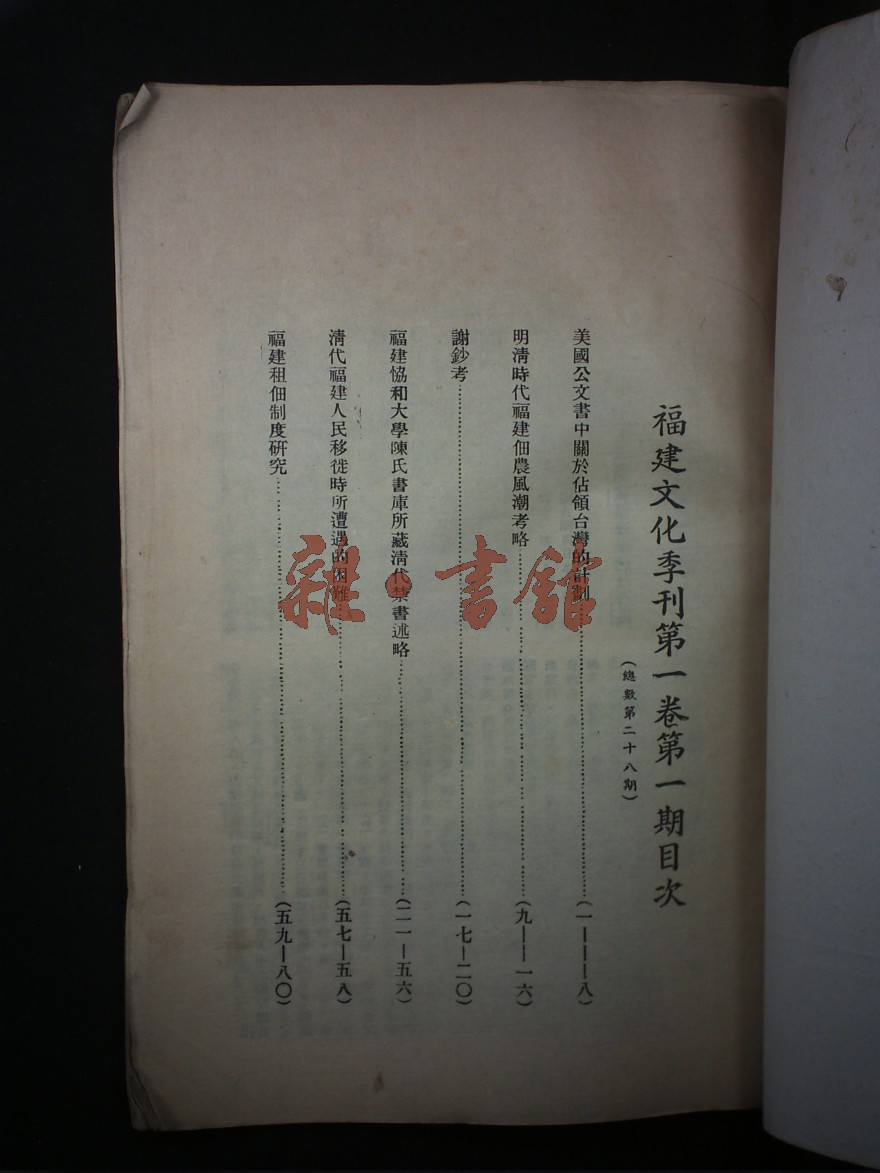 福建文化季刊第一卷第一期目次
(總數第二十八期)
美國公文書中關於佔領台灣的計劃……(一——八)
明清時代福建佃農風潮考略……(九——一六)
謝鈔考……(一七—二〇)
福建恊和大學陳氏書庫所藏清代禁書述略……(二一—五六)
清代福建人民移徙時所遭遇的困難……(五七—五八)
福建租佃制度研究……(五九—八〇)
雜·書館